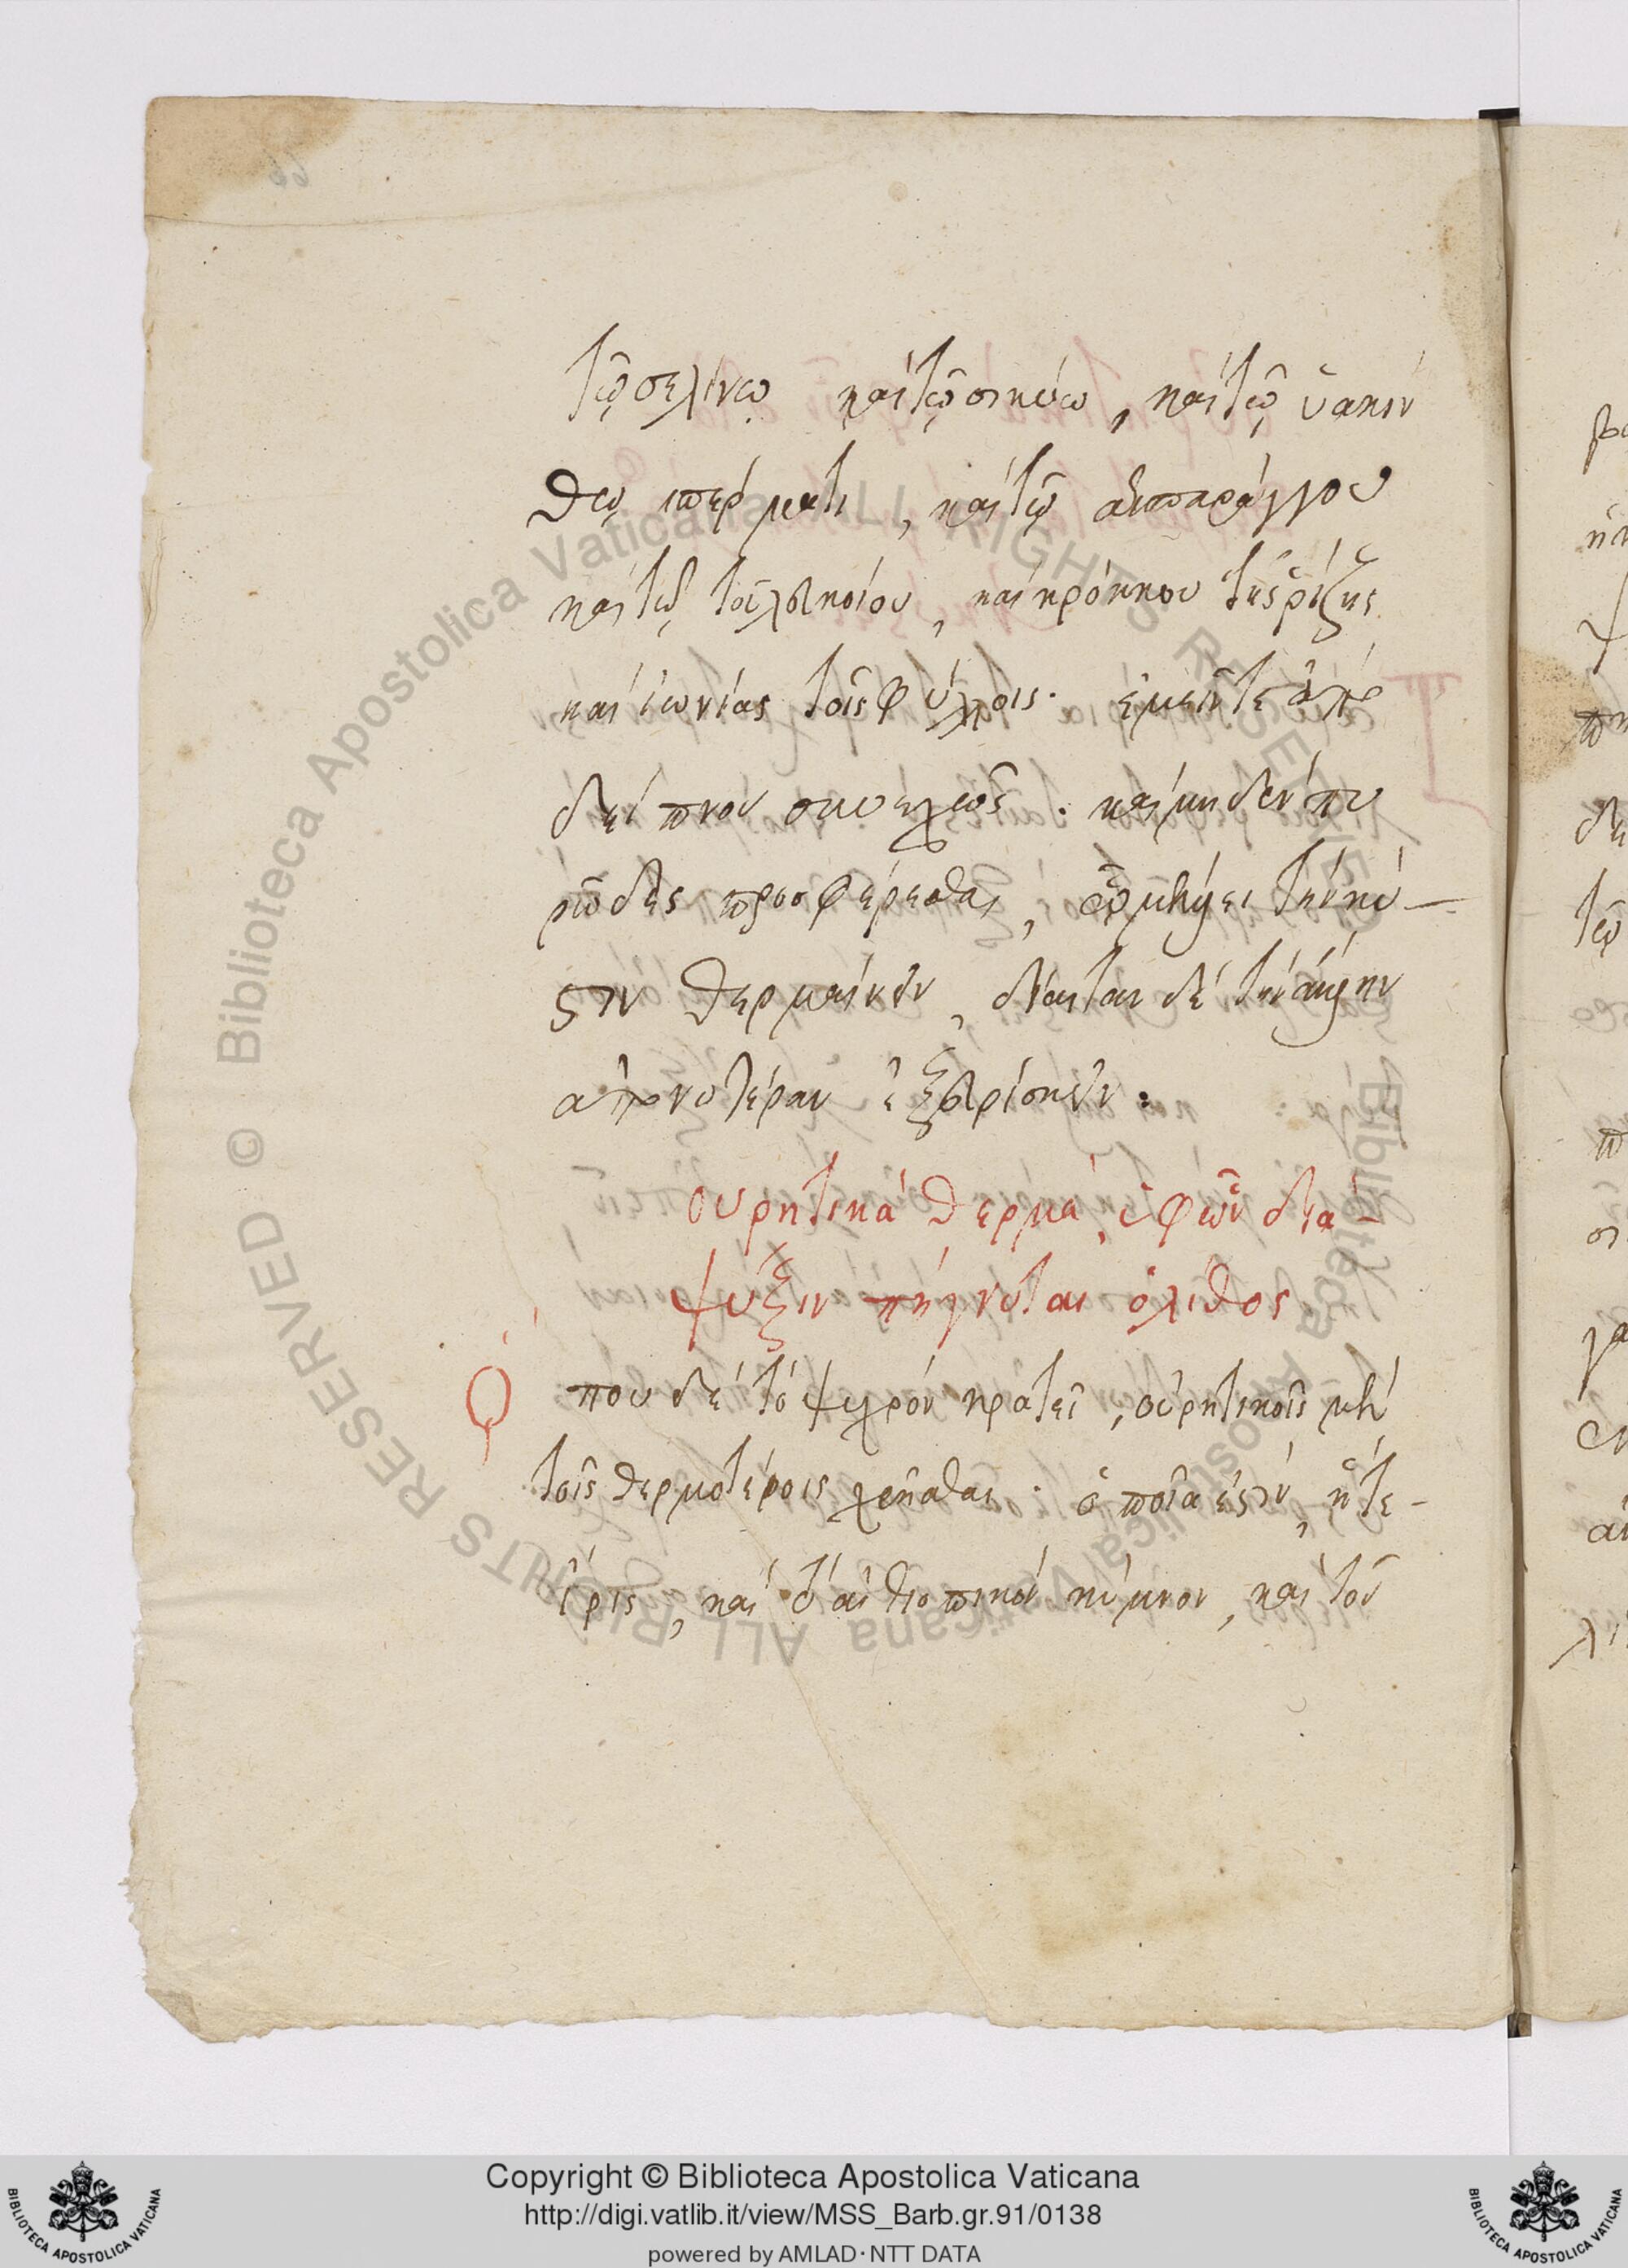 τῶ σελίνω καὶ τῶ σικύω, καὶ τῶ ὑακιν
θω σπέρματι, καὶ τῶ ἀσπαράγγου
καὶ τῶ τοῦ λευκοίου, καὶ κρόκκου τῆς ρίζης
καὶ ἰωνίας τοῖς φύλλοις. ἐμεῖν τε ἀπὸ
δείπνου συνεχῶς. καὶ μηδὲν πυ
ρῶδες προσφέρεσθαι, τὴν κύ-
στιν θερμαίνειν, δίαιταν δὲ τὴν
ἐξευρίσκειν:
ουρητικὰ θερμὰ, ἐφῶν δια-
ψύξιν πήγνυται ὁ λίθος
Ὅπου δὲ τὸ ψυχρὸν κρατεῖ, οὐρητικοῖς μὲν
τοῖς θερμοτέροις χρῆσθαι. ὁποῖα ἐστὶν, ἥτε-
ἶρις, καὶ τὸ αἰθιοπικὸν κύμινον, καὶ τοῦ
Copyright © Biblioteca Apostolica Vaticana
http://digi.vatlib.it/view/MSS_Barb.gr.91/0138
powered by AMLAD·NTT DATA
BIBLIOTECA APOSTOLICA VATICANA
BIBLIOTECA APOSTOLICA VATICANA
© Biblioteca Apostolica Vaticana ALL RIGHTS RESERVED
© Biblioteca Apostolica Vaticana ALL RIGHTS RESERVED